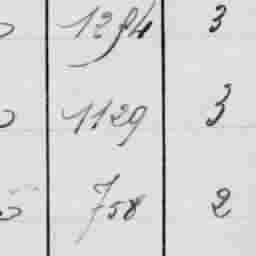 1294 3
1129 3
758 2